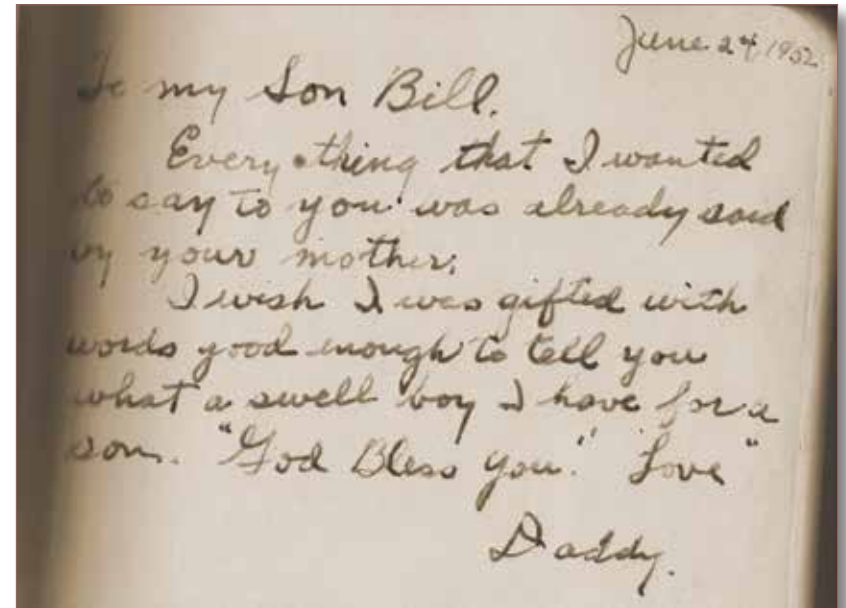 June 24 1952
To my Son Bill.
Everything that I wanted
to say to you was already said
by your mother.
I wish I was gifted with
words good enough to tell you
what a swell boy I have for a
son. "God Bless You." "Love"
Daddy.